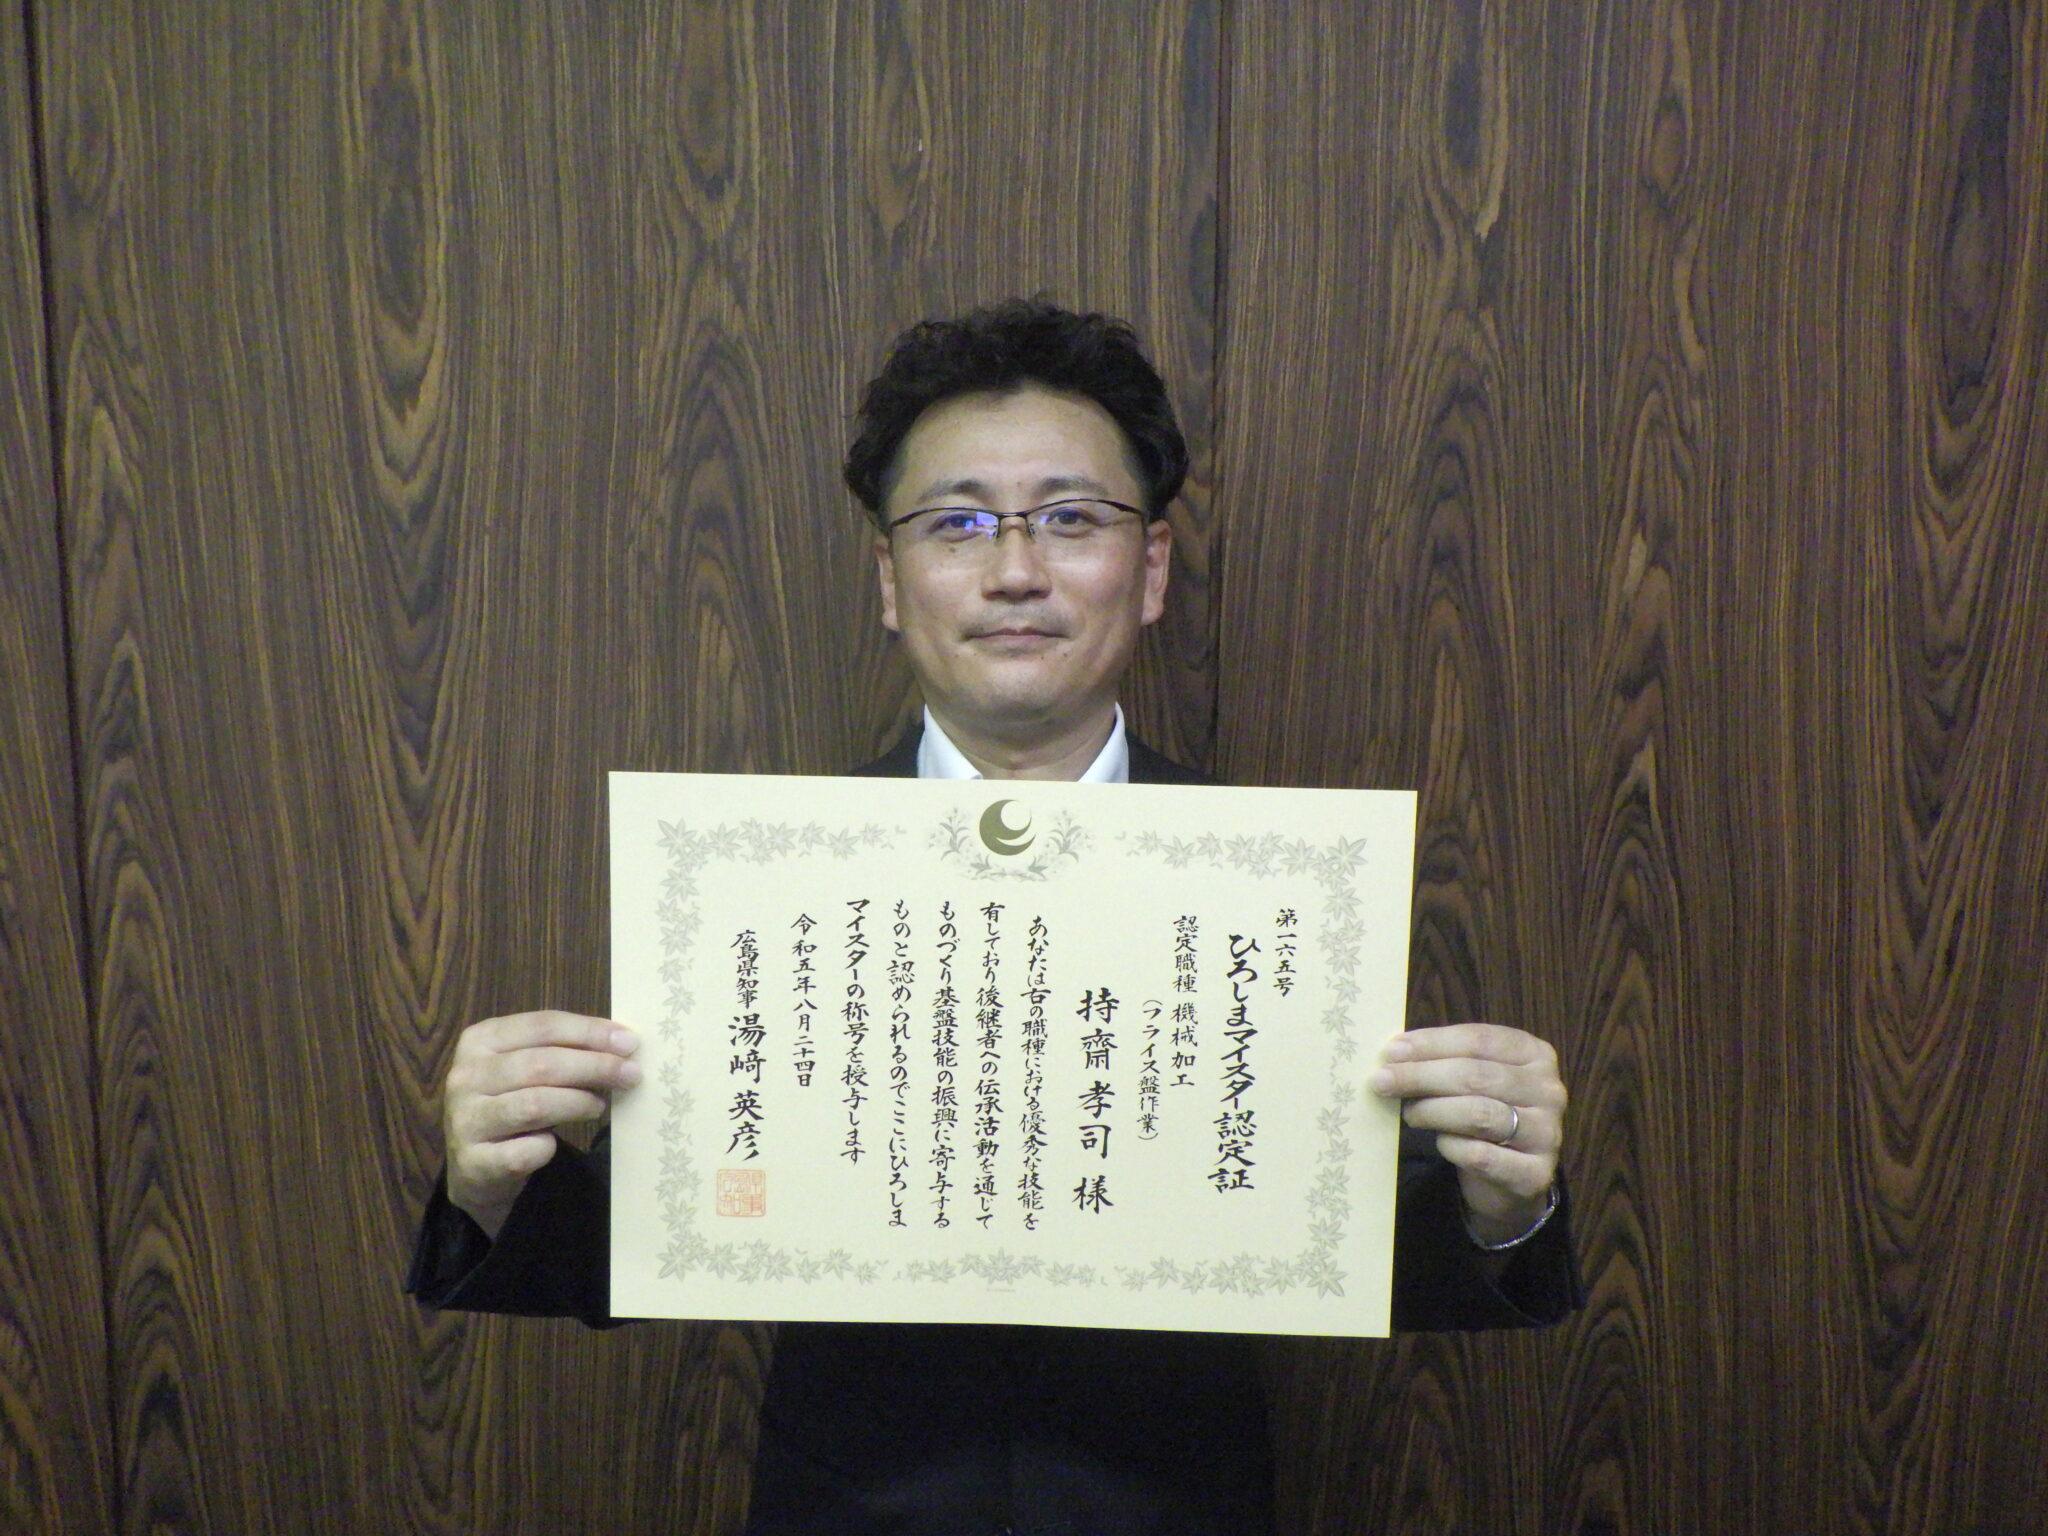 第一六五号
ひろしまマイスター認定証
認定職種 機械加工
（フライス盤作業）
持齋孝司 様
あなたは右の職種における優秀な技能を
有しており後継者への伝承活動を通じて
ものづくり基盤技能の振興に寄与する
ものと認められるのでここにひろしま
マイスターの称号を授与します
令和五年八月二十四日
広島県知事 湯﨑英彦